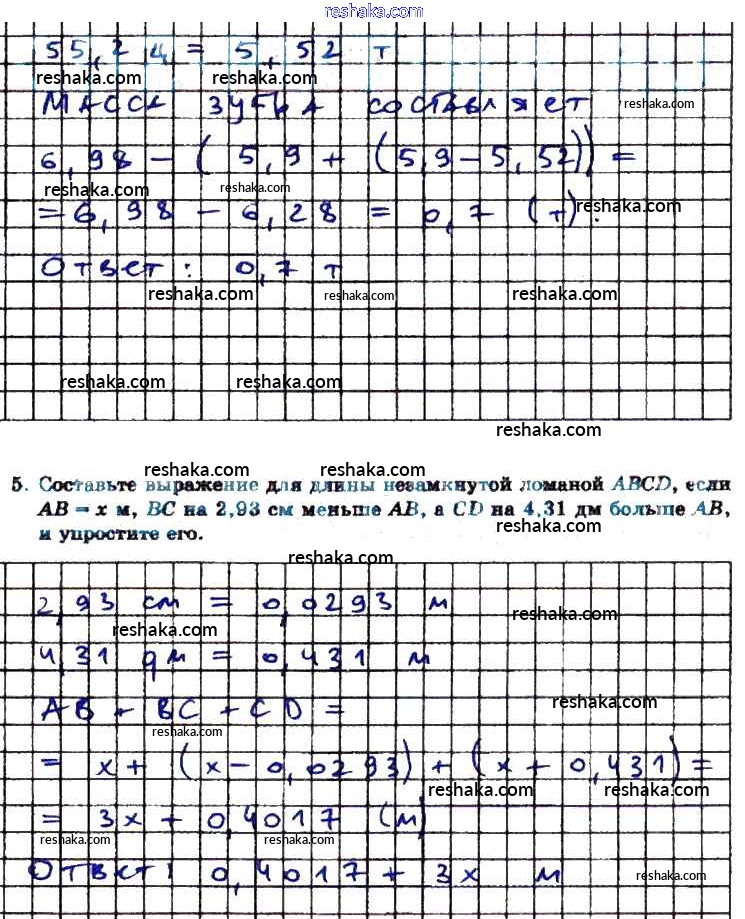 reshaka.com
55,2 ц = 5,52 т
reshaka.com reshaka.com
Масса зубра составляет reshaka.com
6,98 - (5,9 + (5,9 - 5,52)) =
reshaka.com reshaka.com
= 6,98 - 6,28 = 0,7 (т). reshaka.com
Ответ: 0,7 т
reshaka.com reshaka.com reshaka.com
reshaka.com reshaka.com
reshaka.com
reshaka.com reshaka.com
5. Составьте выражение для длины незамкнутой ломаной ABCD, если
AB = x м, BC на 2,93 см меньше AB, а CD на 4,31 дм больше AB,
и упростите его.
reshaka.com
2,93 см = 0,0293 м
reshaka.com
reshaka.com
4,31 дм = 0,431 м
AB + BC + CD =
reshaka.com
reshaka.com
= x + (x - 0,0293) + (x + 0,431) =
reshaka.com reshaka.com
= 3x + 0,4017 (м)
reshaka.com reshaka.com
Ответ: 0,4017 + 3x м reshaka.com